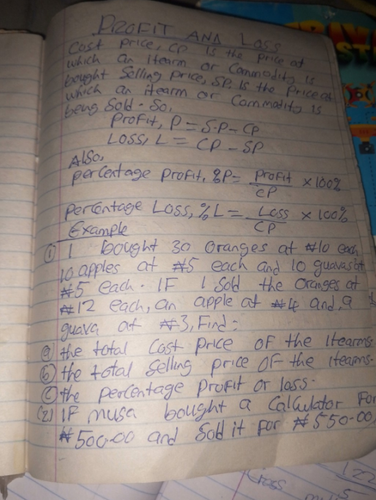 PROFIT AND LOSS
Cost price, CP is the price at
which an itearm or Commodity is
bought Selling price, SP is the Price at
which an itearm or Commodity is
being Sold. So,
Profit, P = S.P - CP
LOSS, L = CP - SP
Also,
percentage profit, %P = profit/CP × 100%
percentage Loss, % L = Loss/CP × 100%
Example
① I bought 30 oranges at ₦10 each
10 apples at ₦5 each and 10 guavas at
₦5 each. IF I sold the oranges at
₦12 each, an apple at ₦4 and a
guava at ₦3, Find:
ⓐ the total Cost price of the itearms.
ⓑ the total Selling price of the itearms.
ⓒ the percentage profit or loss.
(2) IF musa bought a Calculator For
₦500.00 and Sold it for ₦550.00,